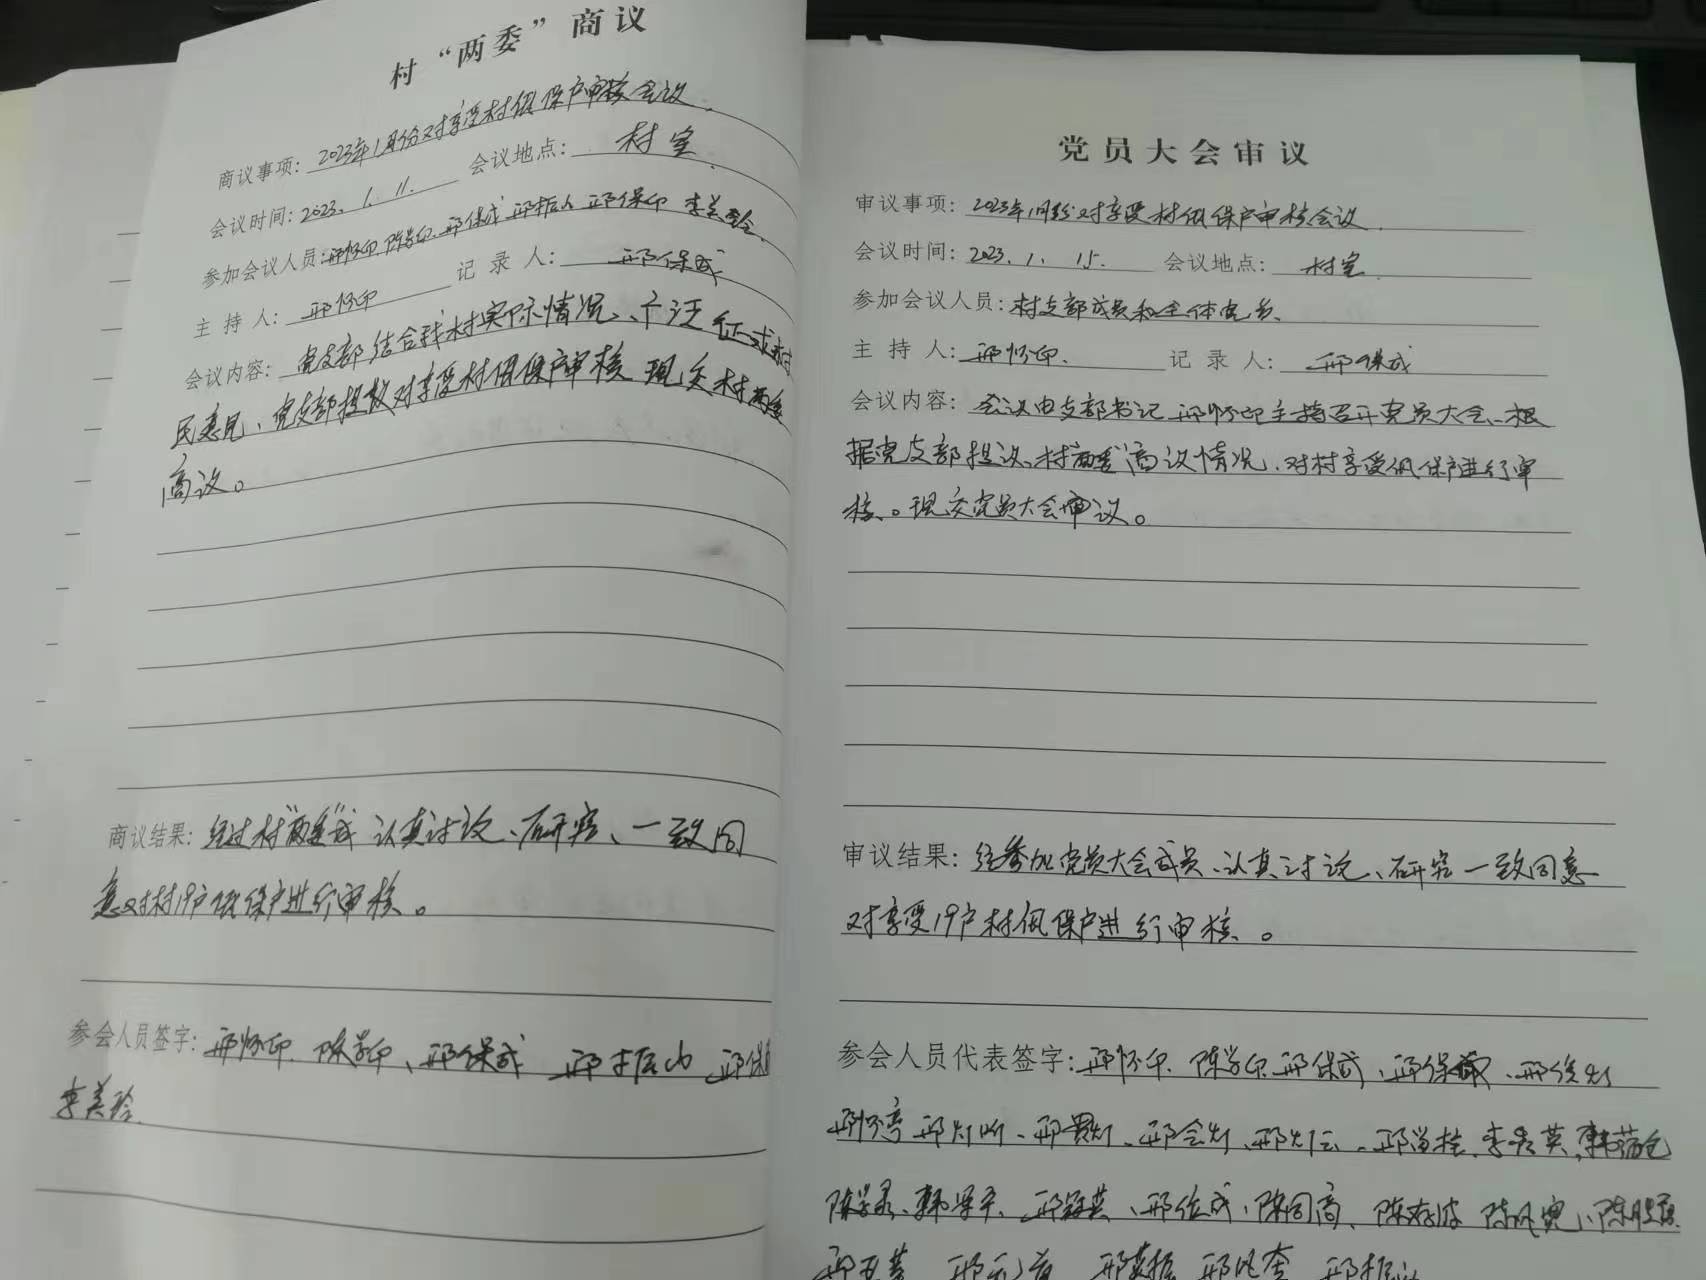 村“两委”商议
商议事项: 2023年1月份对享受村低保户审核会议.
会议时间: 2023.1.11. 会议地点: 村室.
参加会议人员: 邢怀印 陈学印、邢保成 邢振 邢保印 李美玲.
主持人: 邢怀印 记录人: 邢保成
会议内容: 党支部结合我村实际情况、广泛征求村
民意见、党支部提议对享受村低保户审核 现交村两委
商议。
商议结果: 经过村“两委”成 认真讨论、研究、一致同
意对村19户低保户进行审核。
参会人员签字: 邢怀印 陈学印、邢保成 邢振 邢保
李美玲.
党员大会审议
审议事项: 2023年1月份对享受村低保户审核会议.
会议时间: 2023.1.15. 会议地点: 村室.
参加会议人员: 村支部成员和全体党员.
主持人: 邢怀印. 记录人: 邢保成
会议内容: 会议由支部书记邢怀印主持召开党员大会、根
据党支部提议、村“两委”商议情况、对村享受低保户进行审
核。现交党员大会审议。
审议结果: 经参加党员大会成员、认真讨论、研究一致同意
对享受19户村低保户进行审核。
参会人员代表签字: 邢怀印、陈学印、邢保成、邢保
邢贵灯、邢会灯、邢灯云、李英、韩
陈学、韩、邢位成、陈同高、陈存
邢 邢 邢 邢 邢振